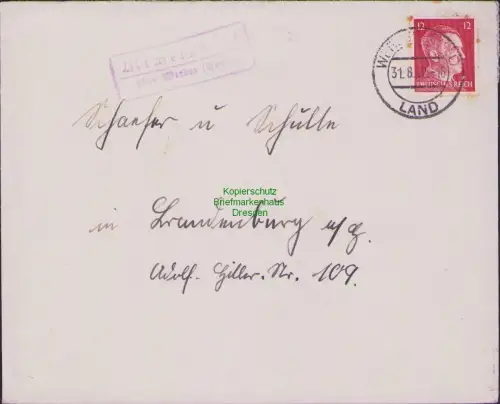 12 12
31.8.
DEUTSCHES REICH
LAND
über Werder (Havel)
Schaefer u Schulte
Kopierschutz
Briefmarkenhaus
Dresden
in Brandenburg a/H.
Adolf-Hitler-Str. 109.